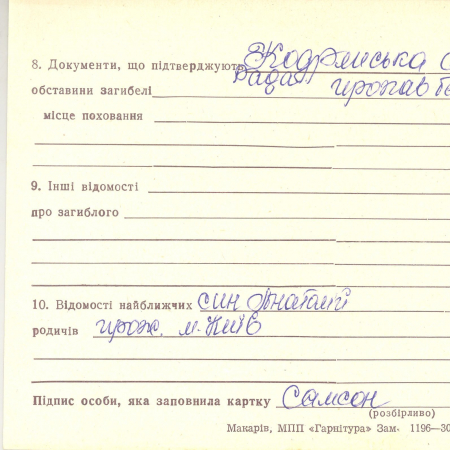 8. Документи, що підтверджують Кодринська с
обставини загибелі Рада пропав бе
місце поховання
9. Інші відомості
про загиблого
10. Відомості найближчих син Анатолій
родичів прож. м. Київ
Підпис особи, яка заповнила картку Самсон
(розбірливо)
Макарів, МПП «Гарнітура» Зам. 1196—30